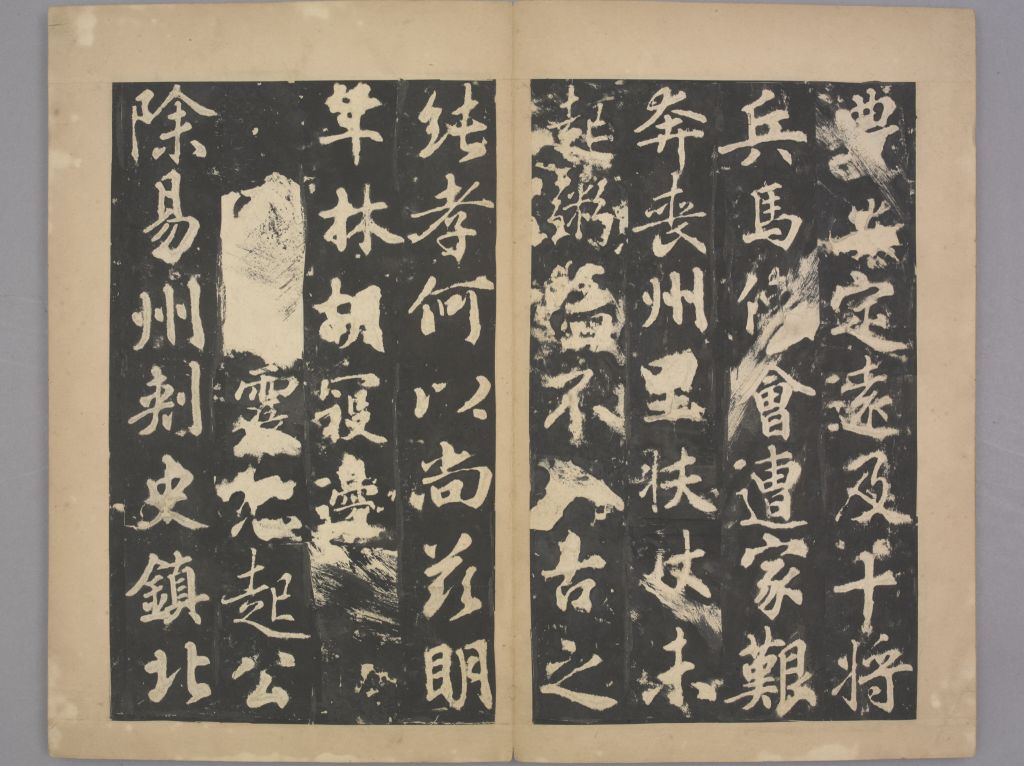 典共定遠及十將
兵馬使會遭家艱
奔喪州里扶杖未
起粥溢不入古之
純孝何以尚茲明
年林胡寇邊
雲麾起公
除易州刺史鎮北